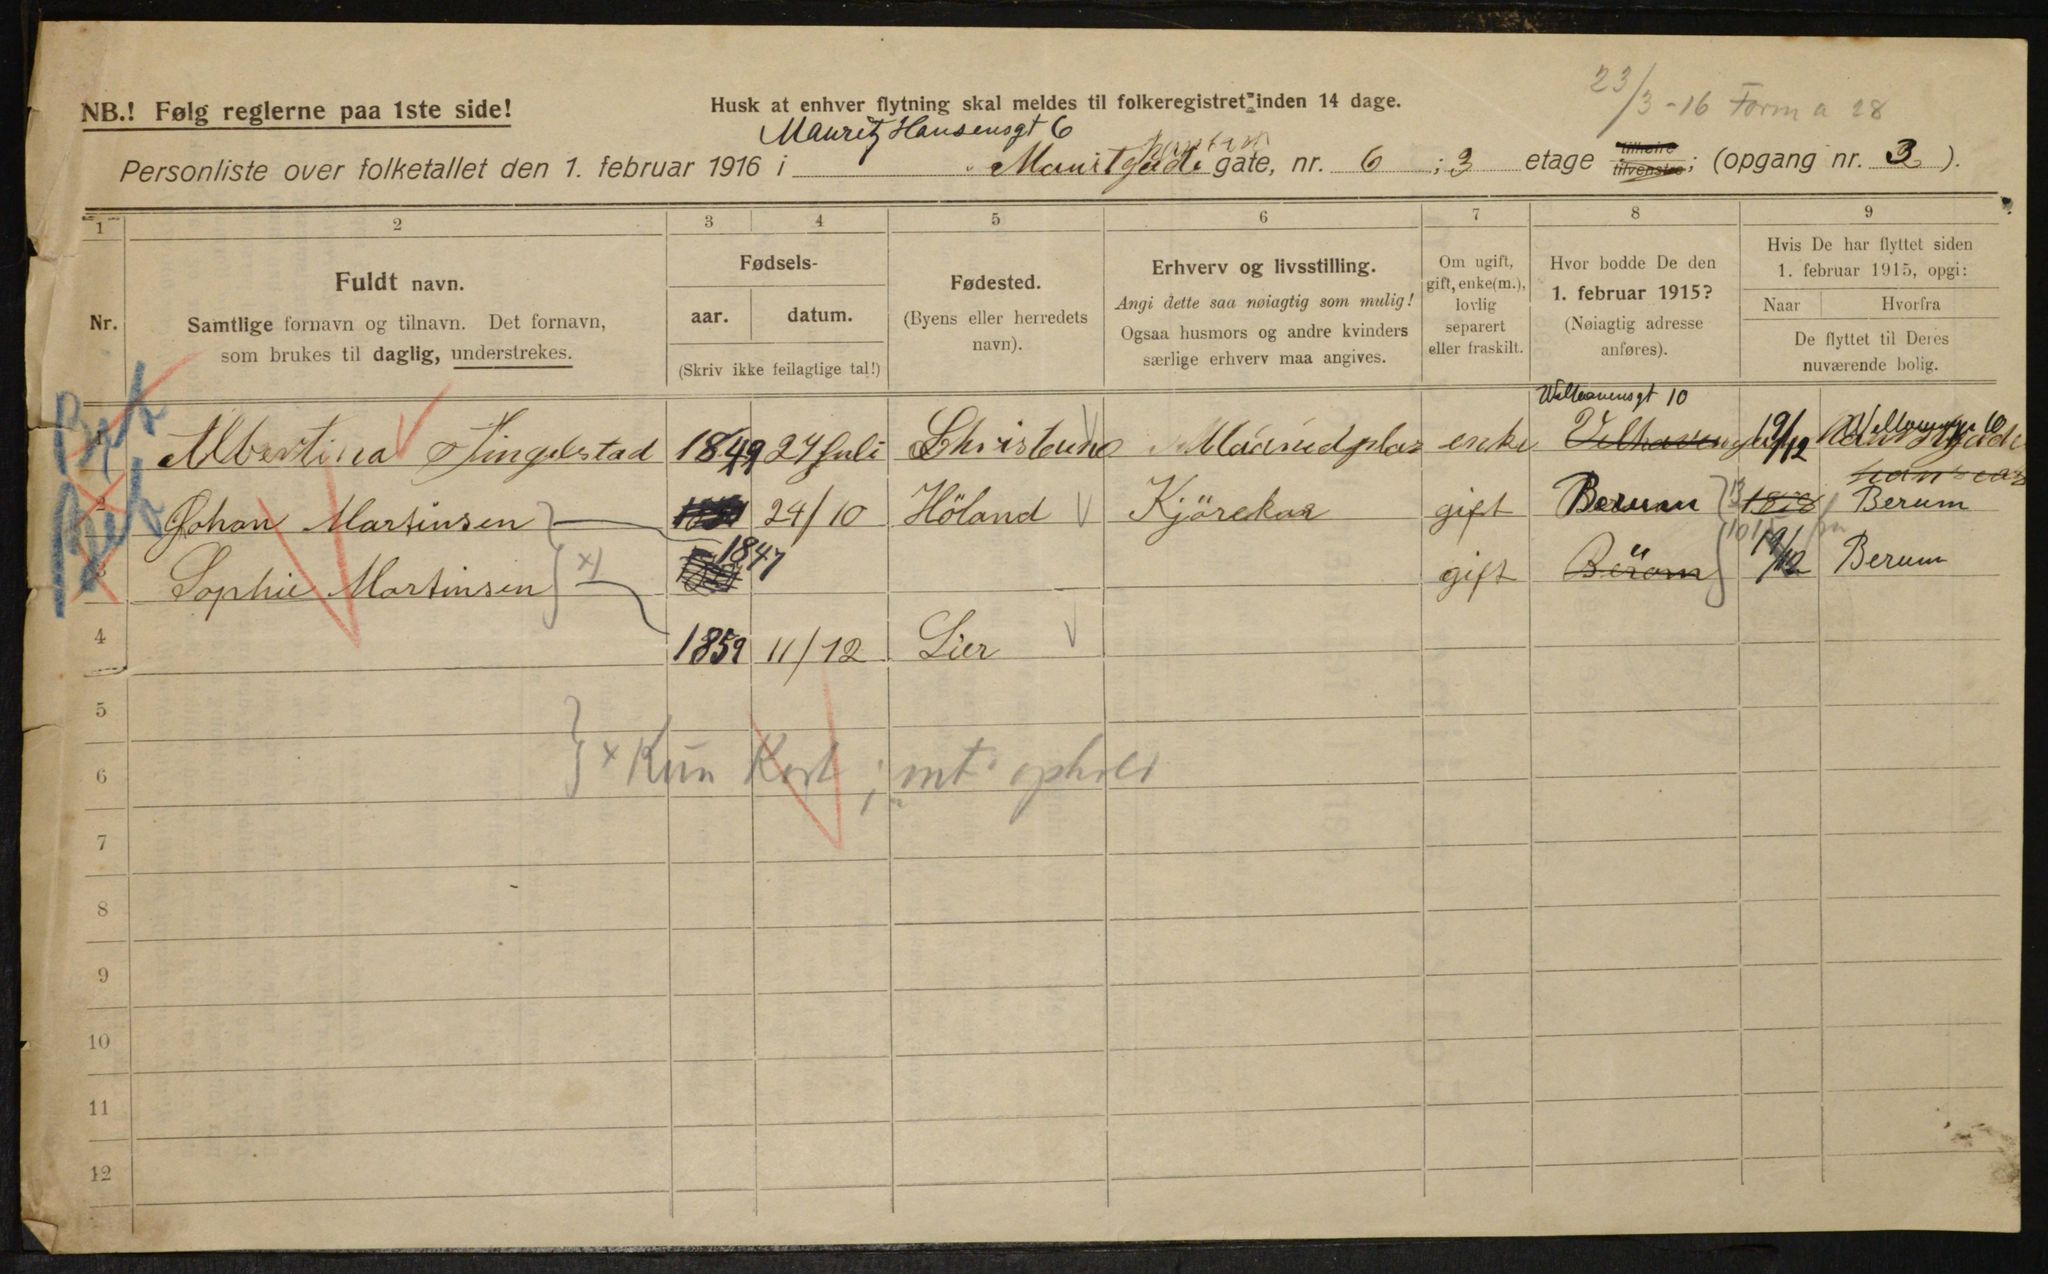 23/3-16 Form a 28
NB.! Følg reglerne paa 1ste side!
Husk at enhver flytning skal meldes til folkeregistret inden 14 dage.
Mauritz Hansensgt 6
Personliste over folketallet den 1. februar 1916 i gate, nr. 6 ; 3 etage tilhøire tilvenstre; (opgang nr. 3).
1 2 3 4 5 6 7 8 9
Nr.
Fuldt navn.
Samtlige fornavn og tilnavn. Det fornavn,
som brukes til daglig, understrekes.
Fødsels-
aar. datum.
(Skriv ikke feilagtige tal!)
Fødested.
(Byens eller herredets
navn).
Erhverv og livsstilling.
Angi dette saa nøiagtig som mulig!
Ogsaa husmors og andre kvinders
særlige erhverv maa angives.
Om ugift,
gift, enke(m.),
lovlig
separert
eller fraskilt.
Hvor bodde De den
1. februar 1915?
(Nøiagtig adresse
anføres).
Hvis De har flyttet siden
1. februar 1915, opgi:
Naar Hvorfra
De flyttet til Deres
nuværende bolig.
1 Albertina 1849 27 Juli enke 19/12
2 Johan Martinsen 24/10 Höland Kjörekar gift Berum Berum
1847
3 Sophie Martinsen x) gift Börom 19/12 Berum
4 1859 11/12 Lier
5
6 x Kun kort ; mt. ophold
7
8
9
10
11
12